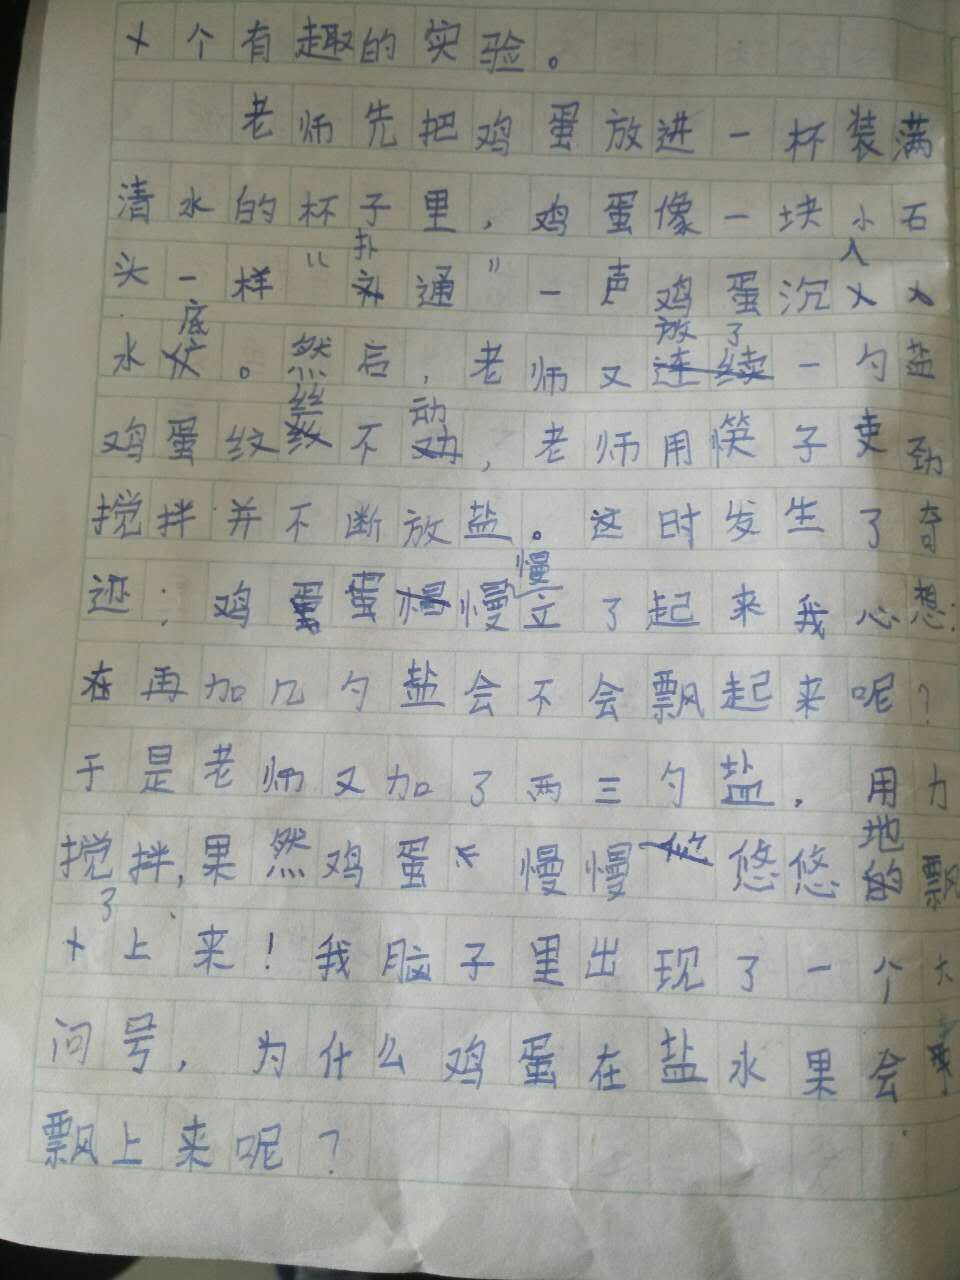 个有趣的实验。
老师先把鸡蛋放进一杯装满
清水的杯子里，鸡蛋像一块小石
头一样“扑通”一声鸡蛋沉入
水底。然后，老师又放了一勺盐
鸡蛋纹丝不动，老师用筷子使劲
搅拌并不断放盐。这时发生了奇
迹：鸡蛋慢慢立了起来我心想：
在再加几勺盐会不会飘起来呢？
于是老师又加了两三勺盐，用力
搅拌，果然鸡蛋慢慢悠悠地飘
了上来！我脑子里出现了一个大
问号，为什么鸡蛋在盐水果会
飘上来呢？